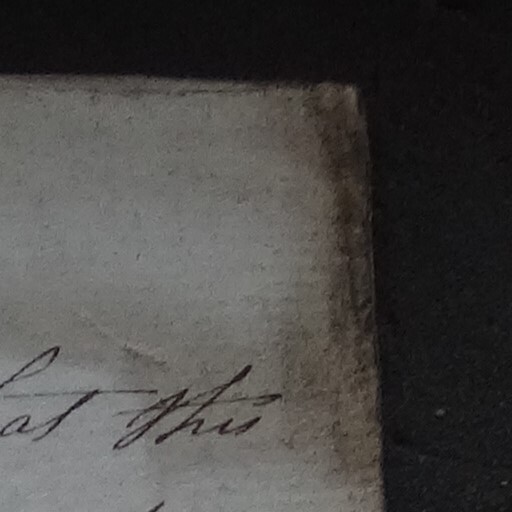 hat this